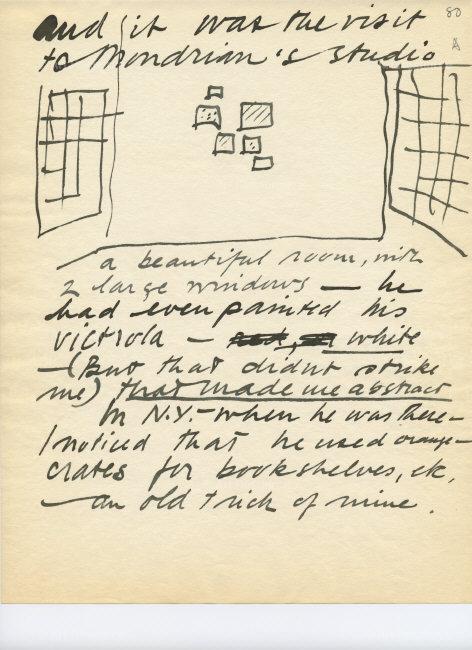 80
A
and it was the visit
to Mondrian's studio
a beautiful room, with
2 large windows — he
had even painted his
victrola — white
—(But that didnt strike
me) that made me abstract
In N.Y.—when he was there—
I noticed that he used orange—
crates for bookshelves, etc,
— an old trick of mine.